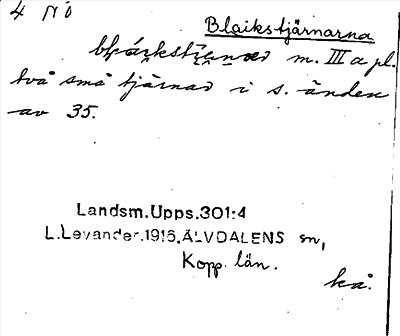 4 NÖ
Blaikstjärnarna
m. III a pl.
två små tjärnar i s. änden
av 35.
Landsm.Upps.301:4
L.Levander.1916.ÄLVDALENS sn,
Kopp. län.
kå.